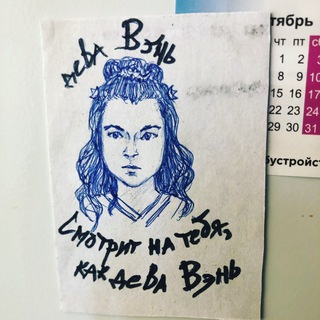 дева Вэнь
Смотрит на тебя,
как дева Вэнь
тябрь
чт пт с
1 2 3
8 9 10
15 16 17
22 23 24
29 30 31
бустройст